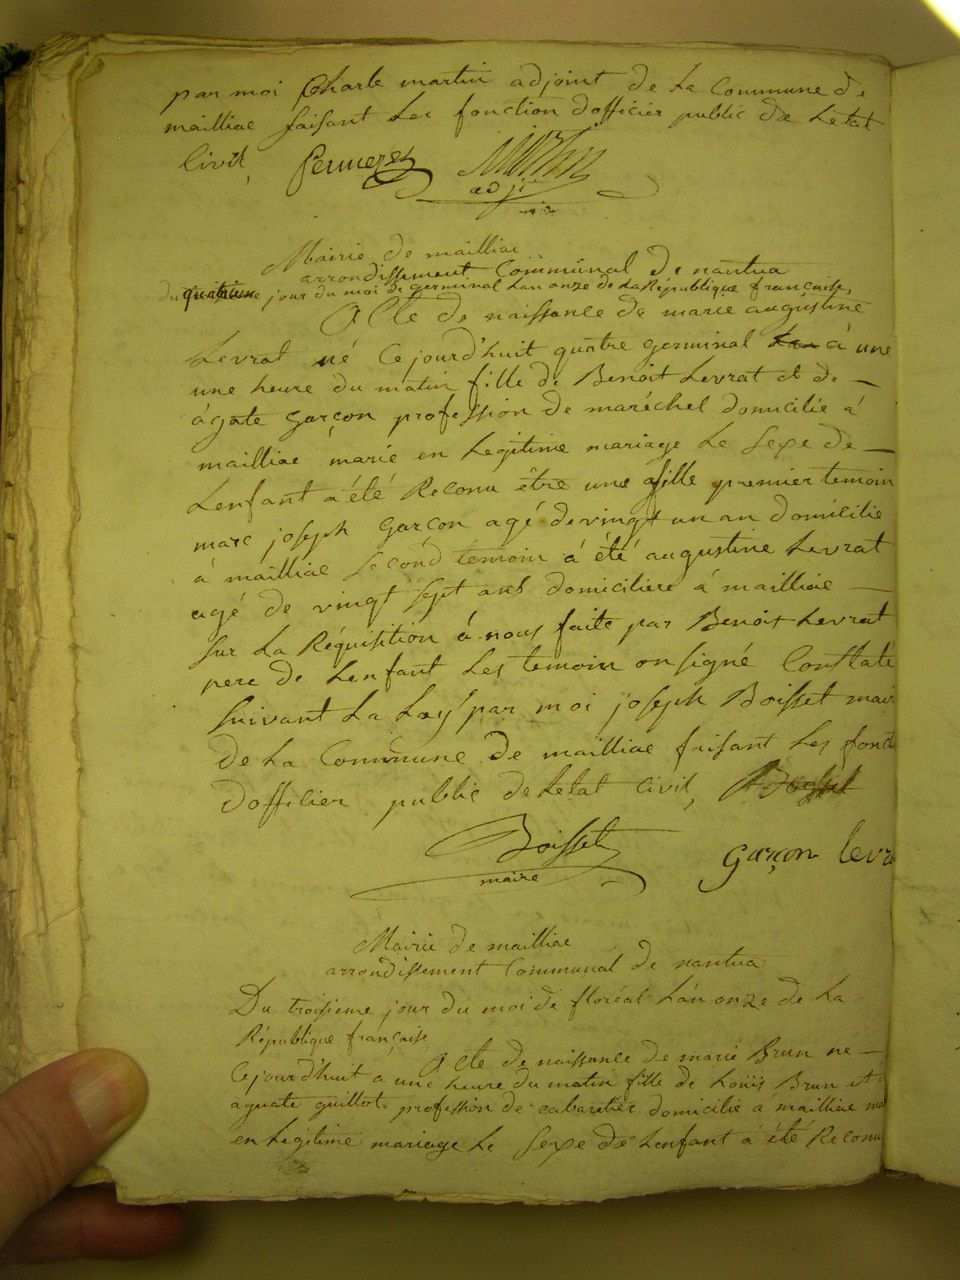 par moi Charle martin adjoint de La Commune de
mailliac faisant Les fonction dofficier public de Letat
Civil,
martin
adjt
Mairie de mailliac
arrondissement Communal de nantua
Du quatrieme jour du moi de germinal Lan onze de La République française,
Acte de naissance de marie augustine
Levrat né Cejourd'huit quatre germinal à une
une heure du matin fille de Benoit Levrat et de
àgate garçon profession de maréchel domicilié à
mailliac marié en Legitime mariage Le Sexe de
Lenfant à été Reconu être une fille premier temoin
marc joseph Garçon agé de vingt un an domicilié
à mailliac Second temoin à été augustine Levrat
agé de vingt sept ans domiciliere à mailliac
Sur La Réquisition à nous faite par Benoit Levrat
pere de Lenfant Les temoin on signé Constaté
Suivant La Loy par moi joseph Boisset mair
de La Commune de mailliac faisant Les fonct
dofficier public de Letat Civil,
Boisset
maire
garçon levra
Mairie de mailliac
arrondissement Communal de nantua
Du troisieme jour du moi de floréal Lán onze de La
République française
Acte de naissance de marie Brun ne
Cejourd'huit a une heure du matin fille de Loüis Brun et
aguate guillot profession de cabaretier domicilié à mailliac ma
en Légitime mariage Le Sexe de Lenfant à été Reconu